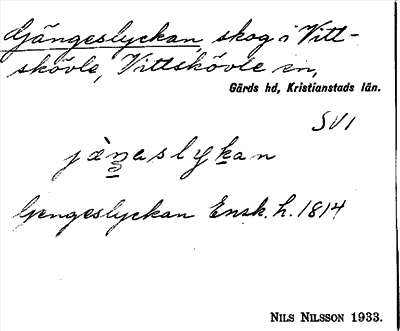 Gängeslyckan, skog i Vitt-
skövle, Vittskövle sn,
Gärds hd, Kristianstads län.
SV1
jàŋeslykan
Gengeslyckan Ensk. h. 1814
NILS NILSSON 1933.